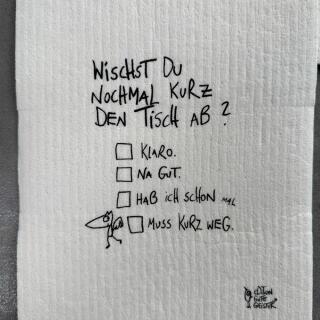 WISCHST DU
NOCHMAL KURZ
DEN TISCH AB?
KLARO.
NA GUT.
HAB ICH SCHON MAL
MUSS KURZ WEG.
EDITION
GUTE
GEISTER